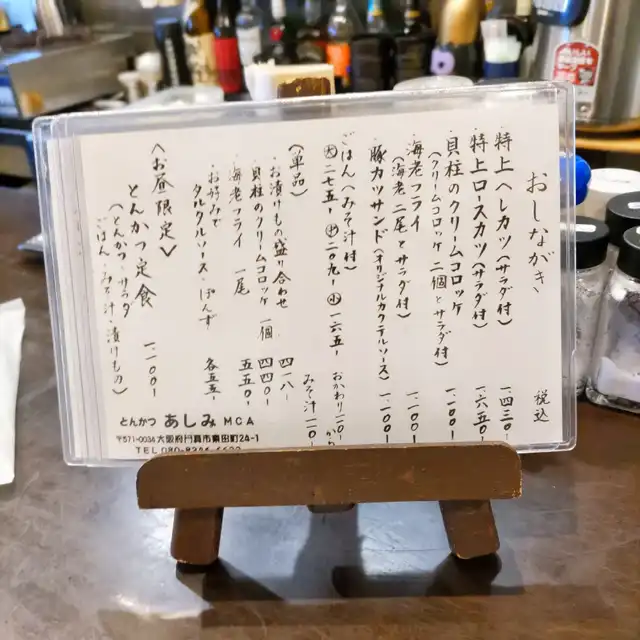 おしながき
税込
・特上ヘレカツ(サラダ付) 一.四三〇-
・特上ロースカツ(サラダ付) 一.六五〇-
・貝柱のクリームコロッケ 一.一〇〇-
(クリームコロッケ二個とサラダ付)
・海老フライ 一.一〇〇-
(海老二尾とサラダ付)
・豚カツサンド(オリジナルカクテルソース) 一.一〇〇-
ごはん(みそ汁付)
大二七五- 中二〇九- 小一六五- おかわり一一〇-
みそ汁一一〇-
(単品)
・お漬けもの盛り合わせ 四一八-
・貝柱のクリームコロッケ 一個 四四〇-
・海老フライ 一尾 五五〇-
・お好みで
タルタルソース・ぽんず 各五五-
<お昼限定>
とんかつ定食 一.一〇〇-
(とんかつ・サラダ
ごはん・みそ汁・漬けもの)
とんかつ あしみ MCA
〒571-0034 大阪府門真市東田町24-1
TEL 080-